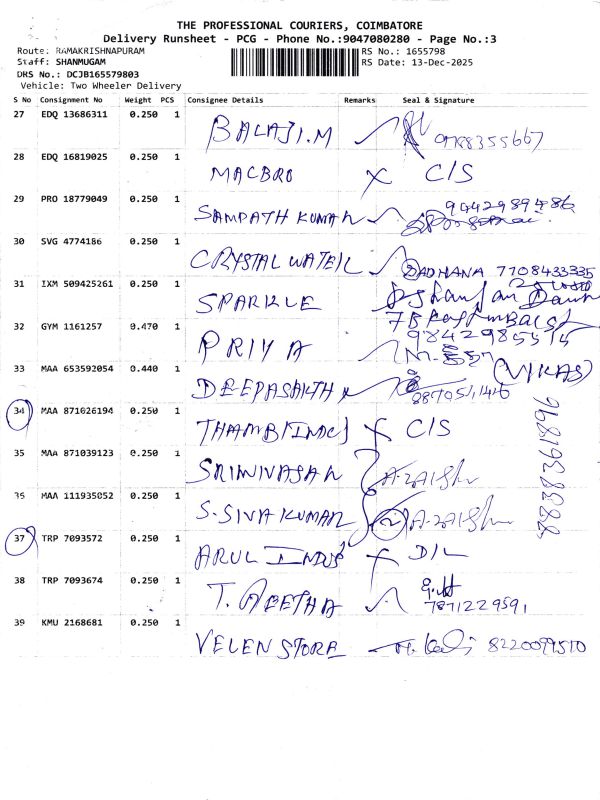 THE PROFESSIONAL COURIERS, COIMBATORE
Delivery Runsheet - PCG - Phone No.:9047080280 - Page No.:3
Route: RAMAKRISHNAPURAM
RS No.: 1655798
Staff: SHANMUGAM
RS Date: 13-Dec-2025
DRS No.: DCJB165579803
Vehicle: Two Wheeler Delivery
S No Consignment No Weight PCS Consignee Details Remarks Seal & Signature
27 EDQ 13686311 0.250 1 BALAJI.M 9788355667
28 EDQ 16819025 0.250 1 MACBRO X C/S
29 PRO 18779049 0.250 1 SAMPATH KUMAR 9442989486
30 SVG 4774186 0.250 1 CRYSTAL WATER SADHANA 7708433335
31 IXM 509425261 0.250 1 SPARKLE
32 GYM 1161257 0.470 1 PRIYA 9842985515
33 MAA 653592054 0.440 1 DEEPASAKTHY (VIKAS)
34 MAA 871026194 0.250 1 THAMBI INDUS X C/S
8838361896
35 MAA 871039123 0.250 1 SRINIVASAN
36 MAA 111935052 0.250 1 S.SIVA KUMAR 2
37 TRP 7093572 0.250 1 ARUL INDUS X D/L
38 TRP 7093674 0.250 1 T. GEETHA 7871229591
39 KMU 2168681 0.250 1 VELEN STORE 8220099510